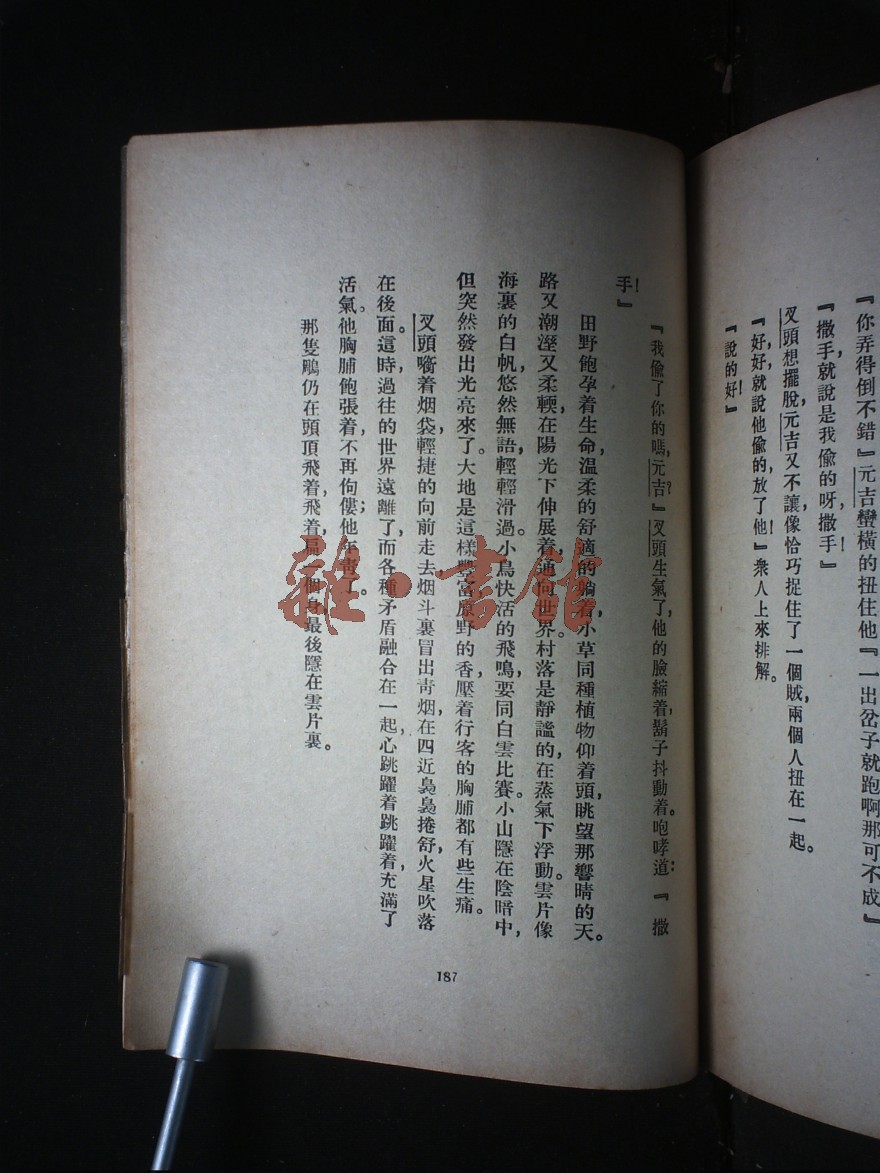 『你弄得倒不錯』元吉蠻橫的扭住他『一出岔子就跑啊那可不成』
『撒手就說是我偷的呀，撒手！』
叉頭想擺脫元吉又不讓，像恰巧捉住了一個賊，兩個人扭在一起。
『好，好，就說他偷的，放了他！』衆人上來排解。
『說的好！』
『我偷了你的嗎，元吉？』叉頭生氣了，他的臉縮着，鬍子抖動着。咆哮道：『撒
手！』
田野飽孕着生命，溫柔的舒適的躺着，小草同種植物仰着頭，眺望那響晴的天。
路又潮溼又柔輭，在陽光下伸展着，通向世界。村落是靜謐的，在蒸氣下浮動。雲片像
海裏的白帆，悠然無語，輕輕滑過。小鳥快活的飛鳴，要同白雲比賽。小山隱在陰暗中，
但突然發出光亮來了。大地是這樣豐富，原野的香壓着行客的胸脯都有些生痛。
叉頭啣着烟袋，輕捷的向前走去，烟斗裏冒出靑烟，在四近裊裊捲舒，火星吹落
在後面。這時過往的世界遠離了，而各種矛盾融合在一起，心跳躍着，跳躍着，充滿了
活氣。他胸脯飽張着，不再佝僂；他年靑了。
那隻鵰仍在頭頂飛着，飛着，扁一個身，最後隱在雲片裏。
187
雜·書館